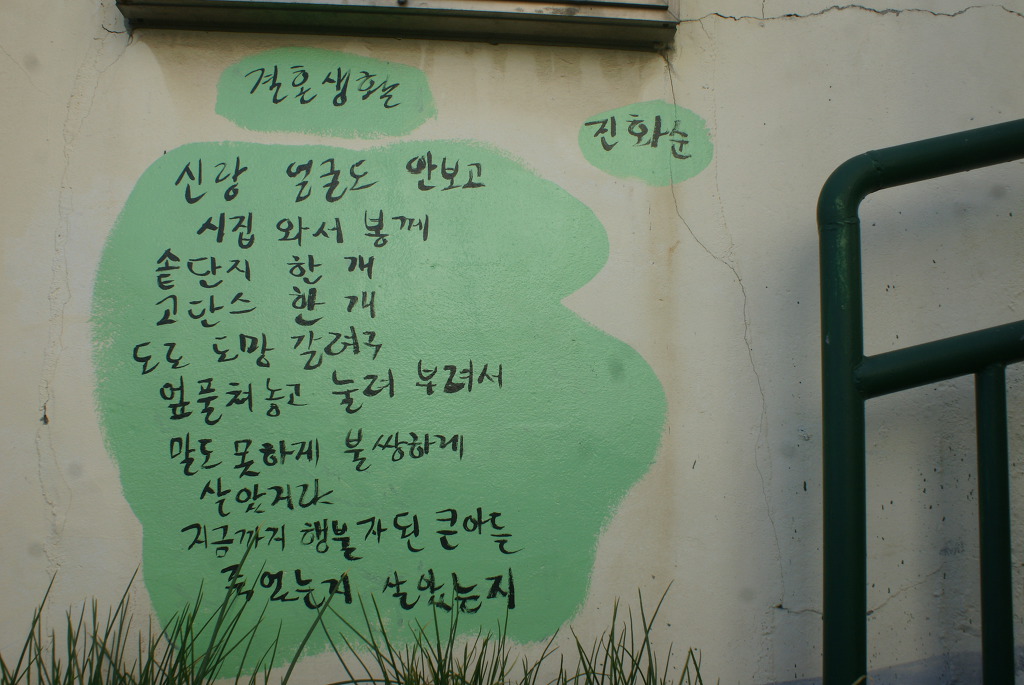 결혼생활
진화순
신랑 얼굴도 안보고
시집 와서 봉께
솥단지 한 개
고단스 한 개
도로 도망 갈려구
엎풀쳐놓고 눌러 부려서
말도 못하게 불쌍하게
살았거라
지금까지 행불자 된 큰아들
죽었는지 살았는지